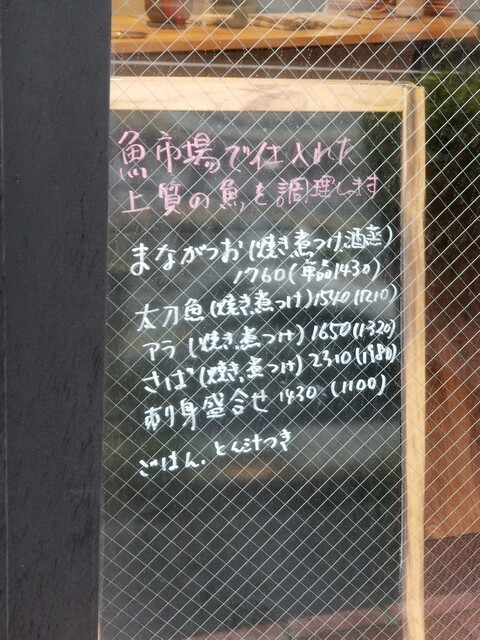 魚市場で仕入れた
上質の魚を調理します
まながつお(焼き,煮つけ,酒蒸)
1760(単品1430)
太刀魚(焼き,煮つけ)1540(1210)
アラ(焼き,煮つけ)1650(1320)
さば(焼き,煮つけ)2310(1980)
刺身盛合せ 1430 (1100)
ごはん.とん汁つき